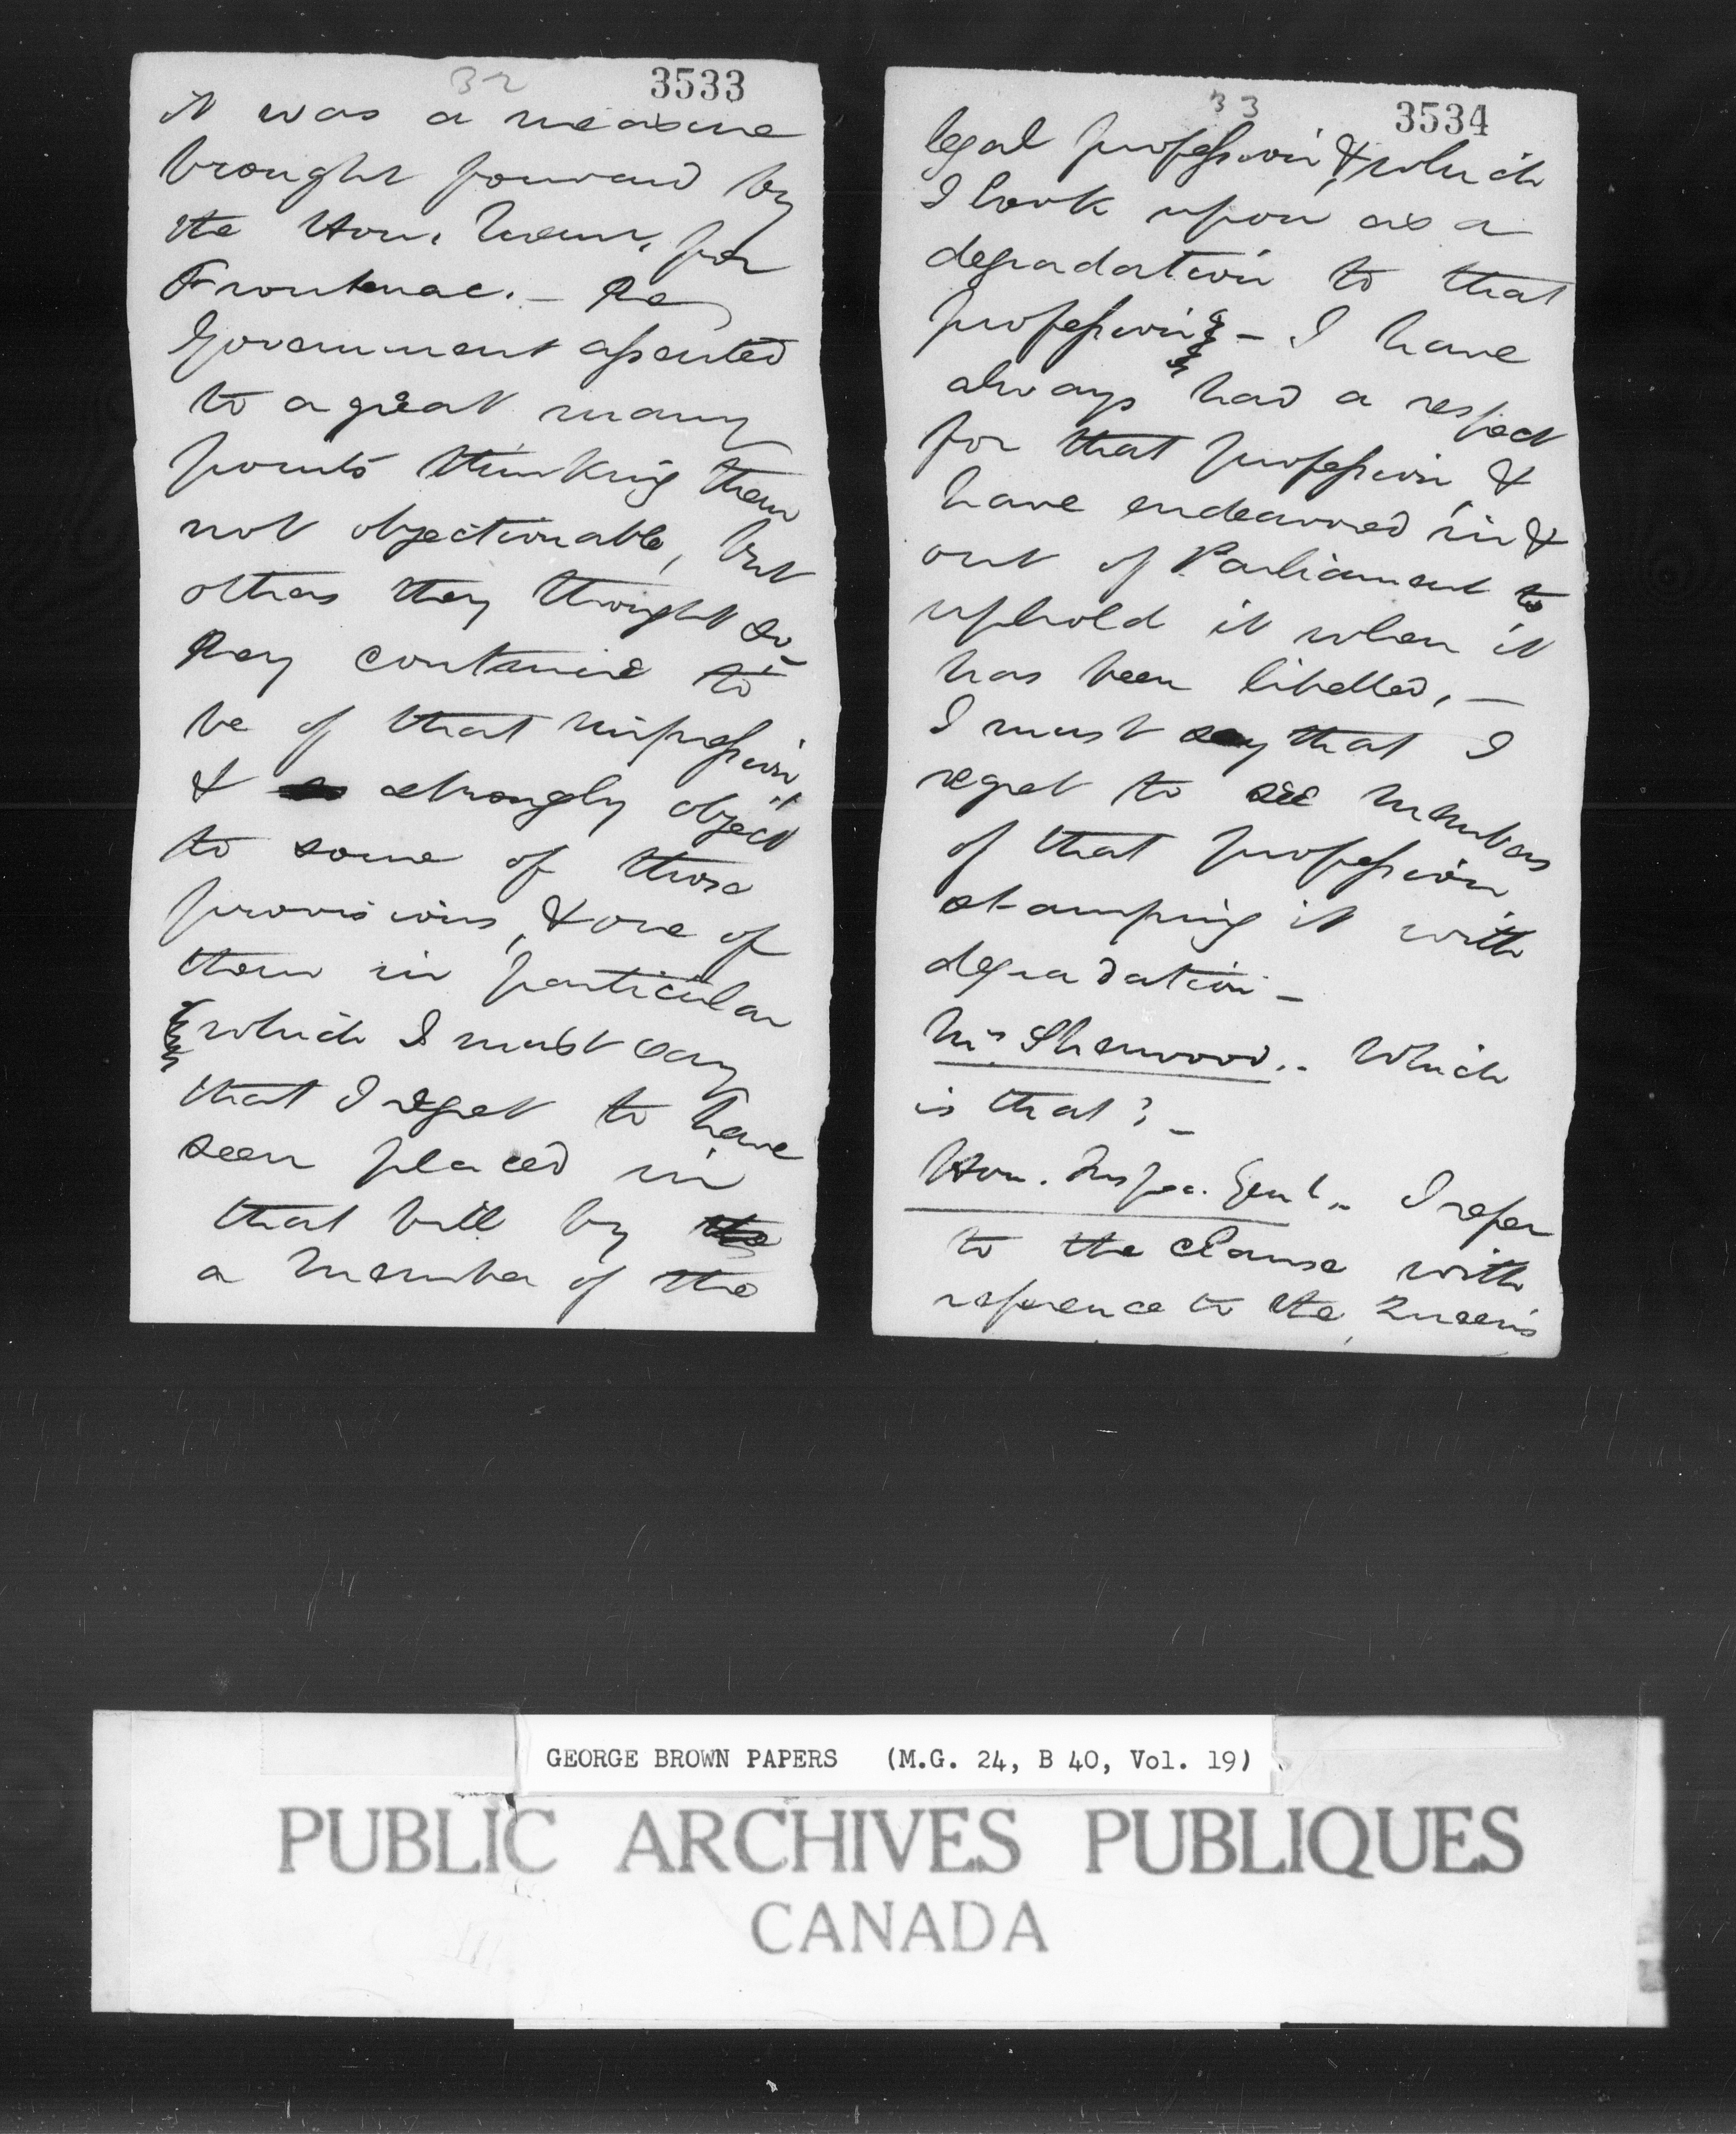 32 3533
it was a measure
brought forward by
the Hon. Mem. for
Frontenac. – The
Government assented
to a great many
points thinking them
not objectionable, but
others they thought so –
They continue to
be of that impression
& strongly object
to some of those
provisions, & one of
them in particular
which I must say
that I regret to have
seen placed in
that bill by the
a Member of the
33 3534
legal profession, & which
I look upon as a
degradation to that
profession – I have
always had a respect
for that profession, &
have endeavored in &
out of Parliament to
uphold it when it
has been libelled, –
I must say that I
regret to see Members
of that profession
stamping it with
degradation –
Mr Sherwood.. Which
is that? –
Hon. Inspec. Genl.. I refer
to the clause with
reference to the Queen's
GEORGE BROWN PAPERS (M.G. 24, B 40, Vol. 19)
PUBLIC ARCHIVES PUBLIQUES
CANADA